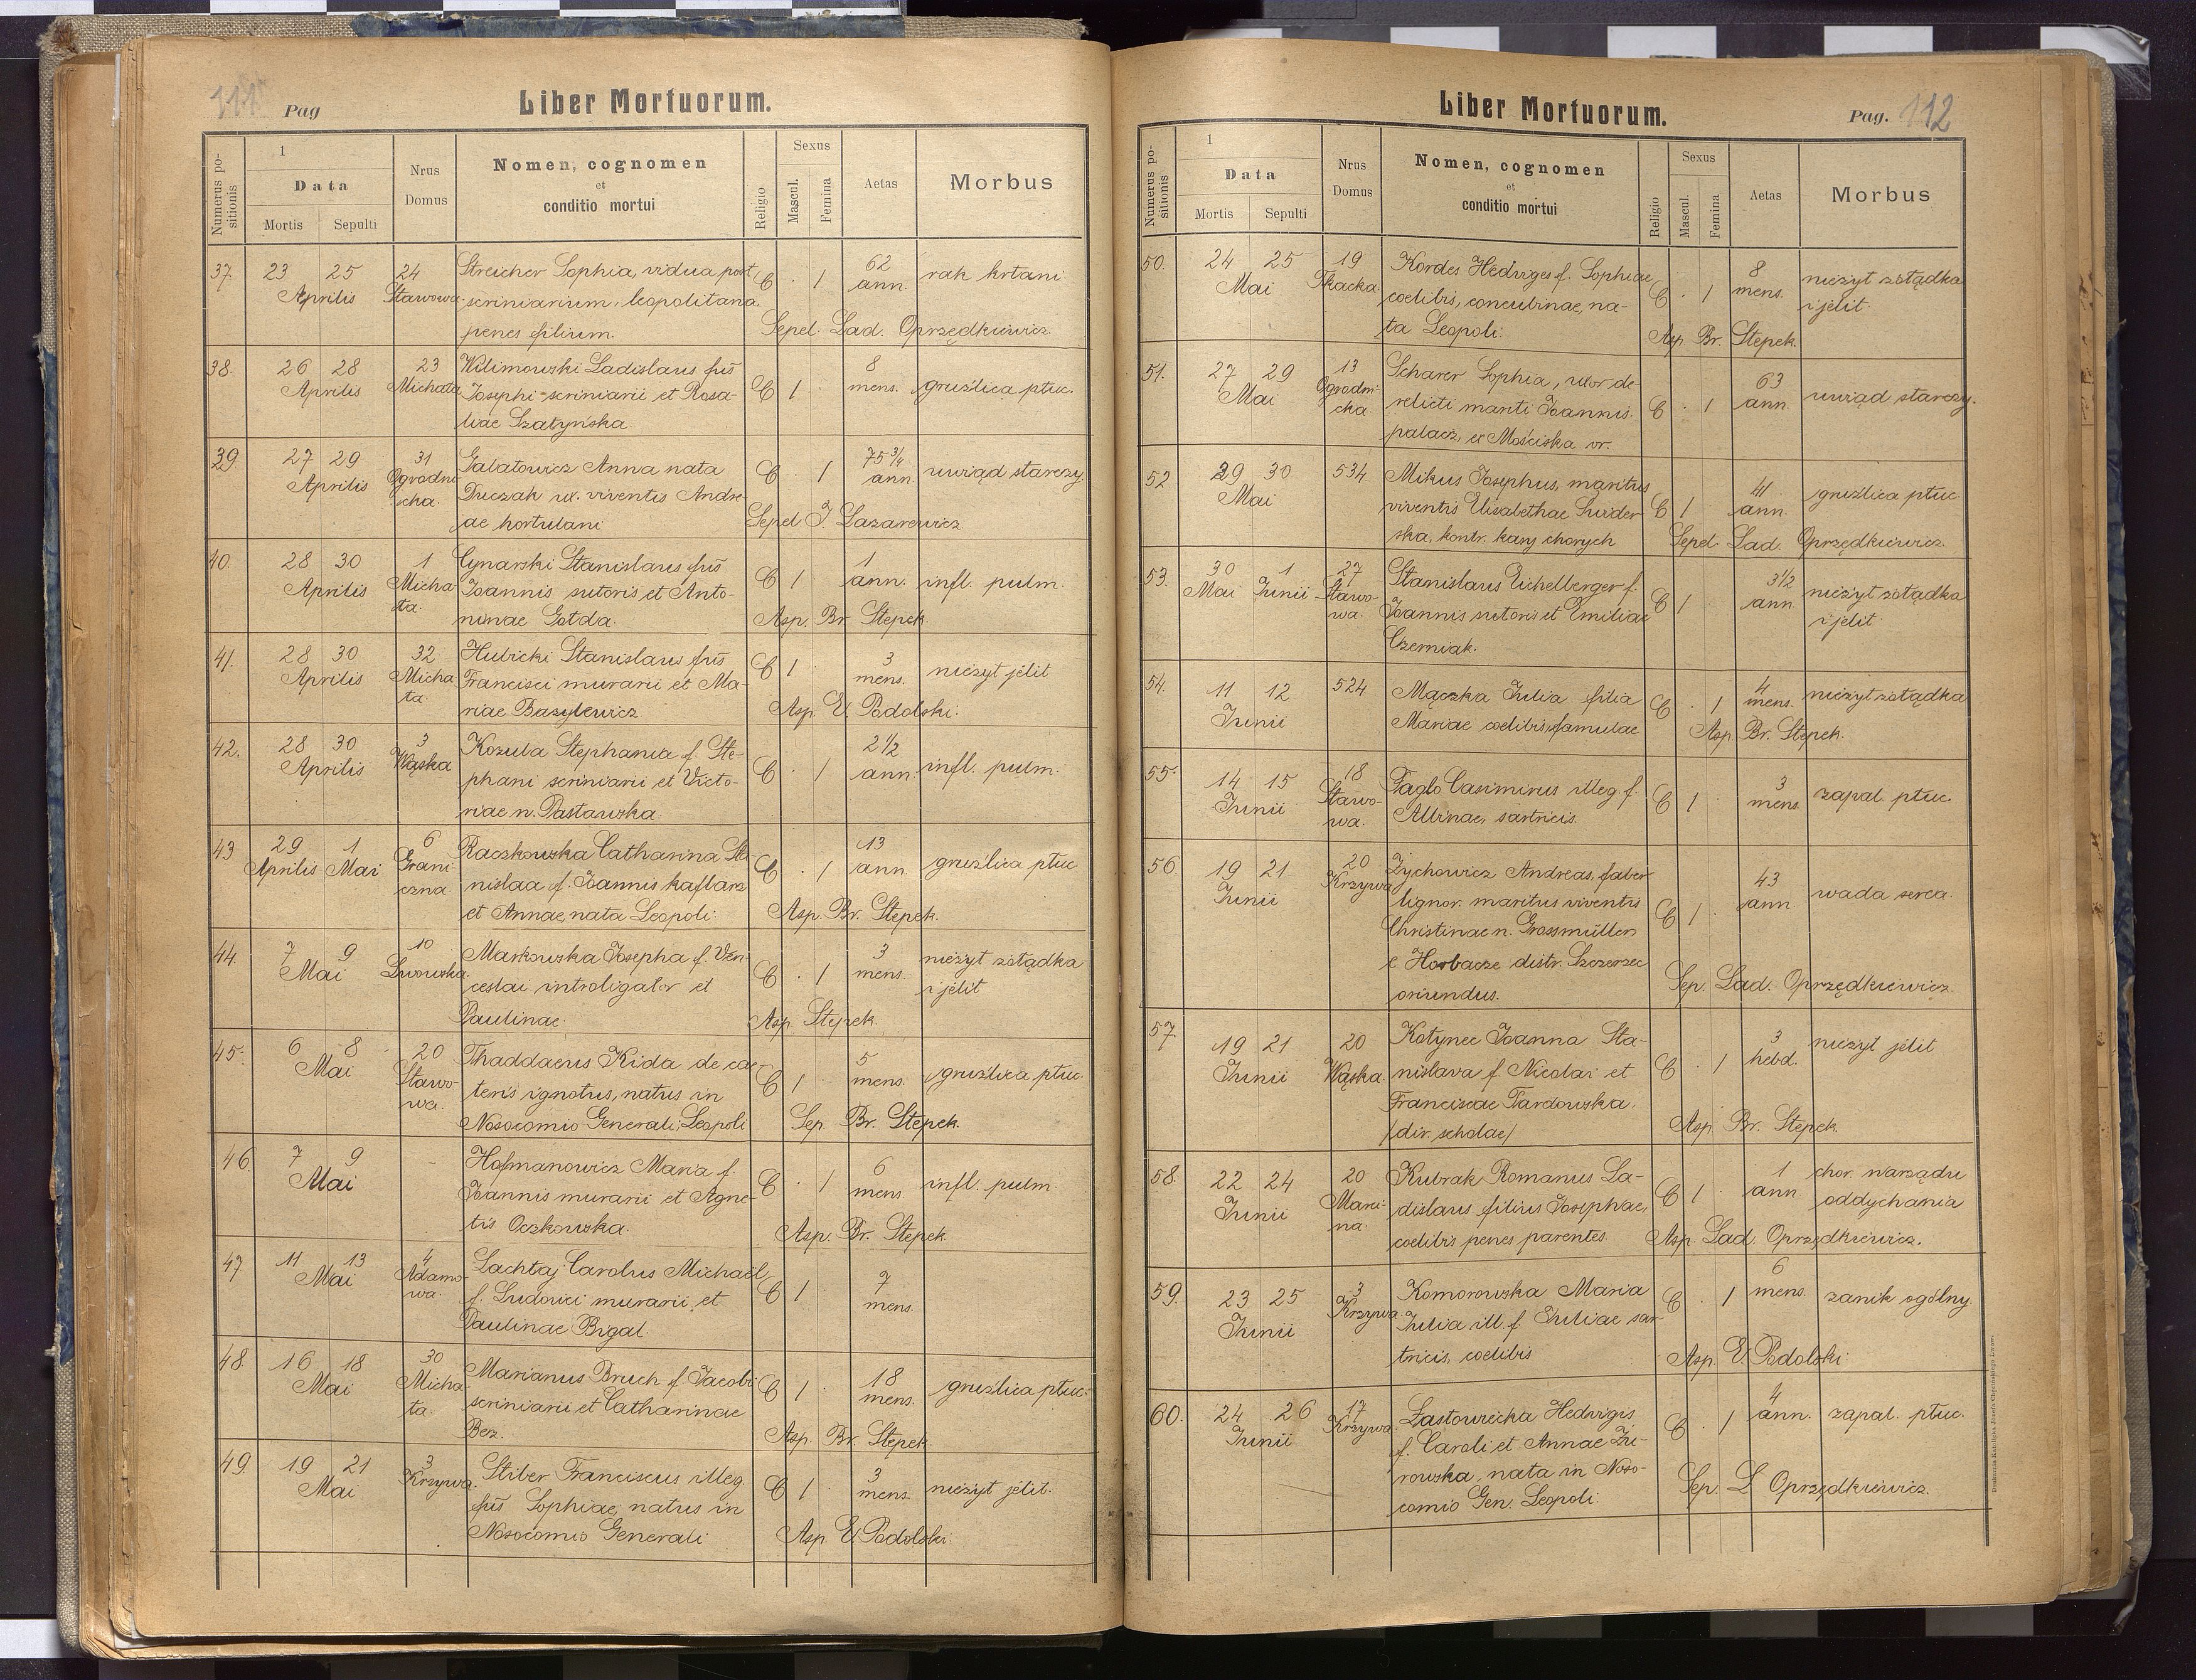 111
Pag
Liber Mortuorum.
Numerus positionis
1
Data
Mortis Sepulti
Nrus Domus
Nomen, cognomen
et
conditio mortui
Religio
Sexus
Mascul. Femina
Aetas
Morbus
37. 23 25 24 Streicher Sophia, vidua post C · 1 62 rak krtani
Aprilis Stawowa scriniarium, leopolitana ann.
penes filium. Sepel. Lad. Oprzędkiewicz.
38. 26 28 23 Wilimowski Ladislaus fils C 1 · 8 gruźlica płuc.
Aprilis Michała Josephi scriniarii et Rosa- mens.
liae Szatyńska.
39. 27 29 31 Galatowicz Anna nata C · 1 75 3/4 uwiąd starczy
Aprilis Ogrodni- Duczak ux. viventis Andre- ann
cka. ae hortulani Sepel. J. Lazarewicz.
40. 28 30 1 Cynarski Stanislaus fils C 1 1 infl. pulm.
Aprilis Micha- Joannis sutoris et Anto- ann.
ła. ninae Gołda. Asp. Br. Stepek.
41. 28 30 32 Hubicki Stanislaus fils C 1 3 nieżyt jelit
Aprilis Micha Francisci murarii et Ma- mens.
ła. riae Basylewicz. Asp. E. Podolski.
42. 28 30 3 Kozula Stephania f. Ste- C · 1 2 1/2 infl. pulm.
Aprilis Wąska phani scriniarii et Victo- ann.
riae n. Pastawska.
43 29 1 6 Raczkowska Catharina Sta- C · 1 13 gruźlica płuc.
Aprilis Mai Grani- nislaa f. Joannis kaflarz ann
czna. et Annae, nata Leopoli. Asp. Br. Stepek.
44. 7 9 10 Markowska Josepha f. Ven- C · 1 3 nieżyt żołądka
Mai Lwowska. ceslai introligator et mens. i jelit
Paulinae. Asp. Stepek.
45. 6 8 20 Thaddaeus Kida de cae- C 1 · 5 gruźlica płuc.
Mai Stawo- teris ignotus, natus in mens.
wa. Nosocomio Generali, Leopoli Sep. Br. Stepek.
46. 7 9 Hofmanowicz Maria f. C · 1 6 infl. pulm
Mai Joannis murarii et Agne- mens
tis Oczkowska. Asp. Br. Stepek.
47 11 13 4 Lachtaj Carolus Michaël C 1 · 7
Mai Adamo- f. Ludovici murarii et mens.
wa. Paulinae Bigal.
48 16 18 30 Marianus Bruch f. Jacobi C 1 · 18 gruźlica płuc.
Mai Micha scriniarii et Catharinae mens.
ła. Bez. Asp. Br. Stepek.
49. 19 21 3 Stiber Franciscus illeg. C 1 · 3 nieżyt jelit.
Mai Krzywa fils Sophiae, natus in mens.
Nosocomio Generali Asp. E. Podolski.
Liber Mortuorum.
Pag. 112
Numerus positionis
1
Data
Mortis Sepulti
Nrus Domus
Nomen, cognomen
et
conditio mortui
Religio
Sexus
Mascul. Femina
Aetas
Morbus
50. 24 25 19 Kordes Hedviges f. Sophiae C · 1 8 nieżyt żołądka
Mai Tkacka. coelibis, concubinae, na- mens. i jelit
ta Leopoli. Asp. Br. Stepek.
51. 27 29 13 Scharer Sophia, uxor de- C · 1 63 uwiąd starczy.
Mai Ogrodni- relicti mariti Joannis ann.
cka. palacz, ex Mościska or.
52 29 30 534 Mikus Josephus, maritus C 1 41 gruźlica płuc.
Mai viventis Elisabethae Świder ann.
ska, kontr. kasy chorych Sepel. Lad. Oprzędkiewicz.
53. 30 1 27 Stanislaus Eichelberger f. C 1 3 1/2 nieżyt żołądka
Mai Junii Stawo- Joannis sutoris et Emiliae ann i jelit
wa. Czerniak.
54. 11 12 524 Mączka Julia filia C · 1 4 nieżyt żołądka
Junii Mariae coelibis, famulae mens.
Asp. Br. Stepek.
55. 14 15 18 Faglo Casimirus illeg. f. C 1 · 3 zapal. płuc.
Junii Stawo- Albinae, sartricis. mens.
wa.
56 19 21 20 Zychowicz Andreas, faber C 1 · 43 wada serca.
Junii Krzywa lignor. maritus viventis ann
Christinae n. Grossmüller
e Horbacze distr. Szczerzec
oriundus. Sep. Lad. Oprzędkiewicz.
57. 19 21 20 Kotynec Joanna Sta- C · 1 3 nieżyt jelit
Junii Wąska. nislava f. Nicolai et hebd.
Franciscae Tardowska.
/dir. scholae/ Asp. Br. Stepek.
58. 22 24 20 Kubrak Romanus La- C 1 · 1 chor. narządu
Junii Mari- dislaus filius Josephae, ann oddychania
na. coelibis penes parentes Asp. Lad. Oprzędkiewicz.
59. 23 25 3 Komorowska Maria C · 1 6 zanik ogólny.
Junii Krzywa. Julia ill. f. Juliae sar mens.
tricis, coelibis Asp. E. Podolski.
60. 24 26 17 Lastowiecka Hedvigis C · 1 4 zapal. płuc.
Junii Krzywa f. Caroli et Annae Żu- ann.
rowska, nata in Noso-
comio Gen. Leopoli. Sep. L Oprzędkiewicz.